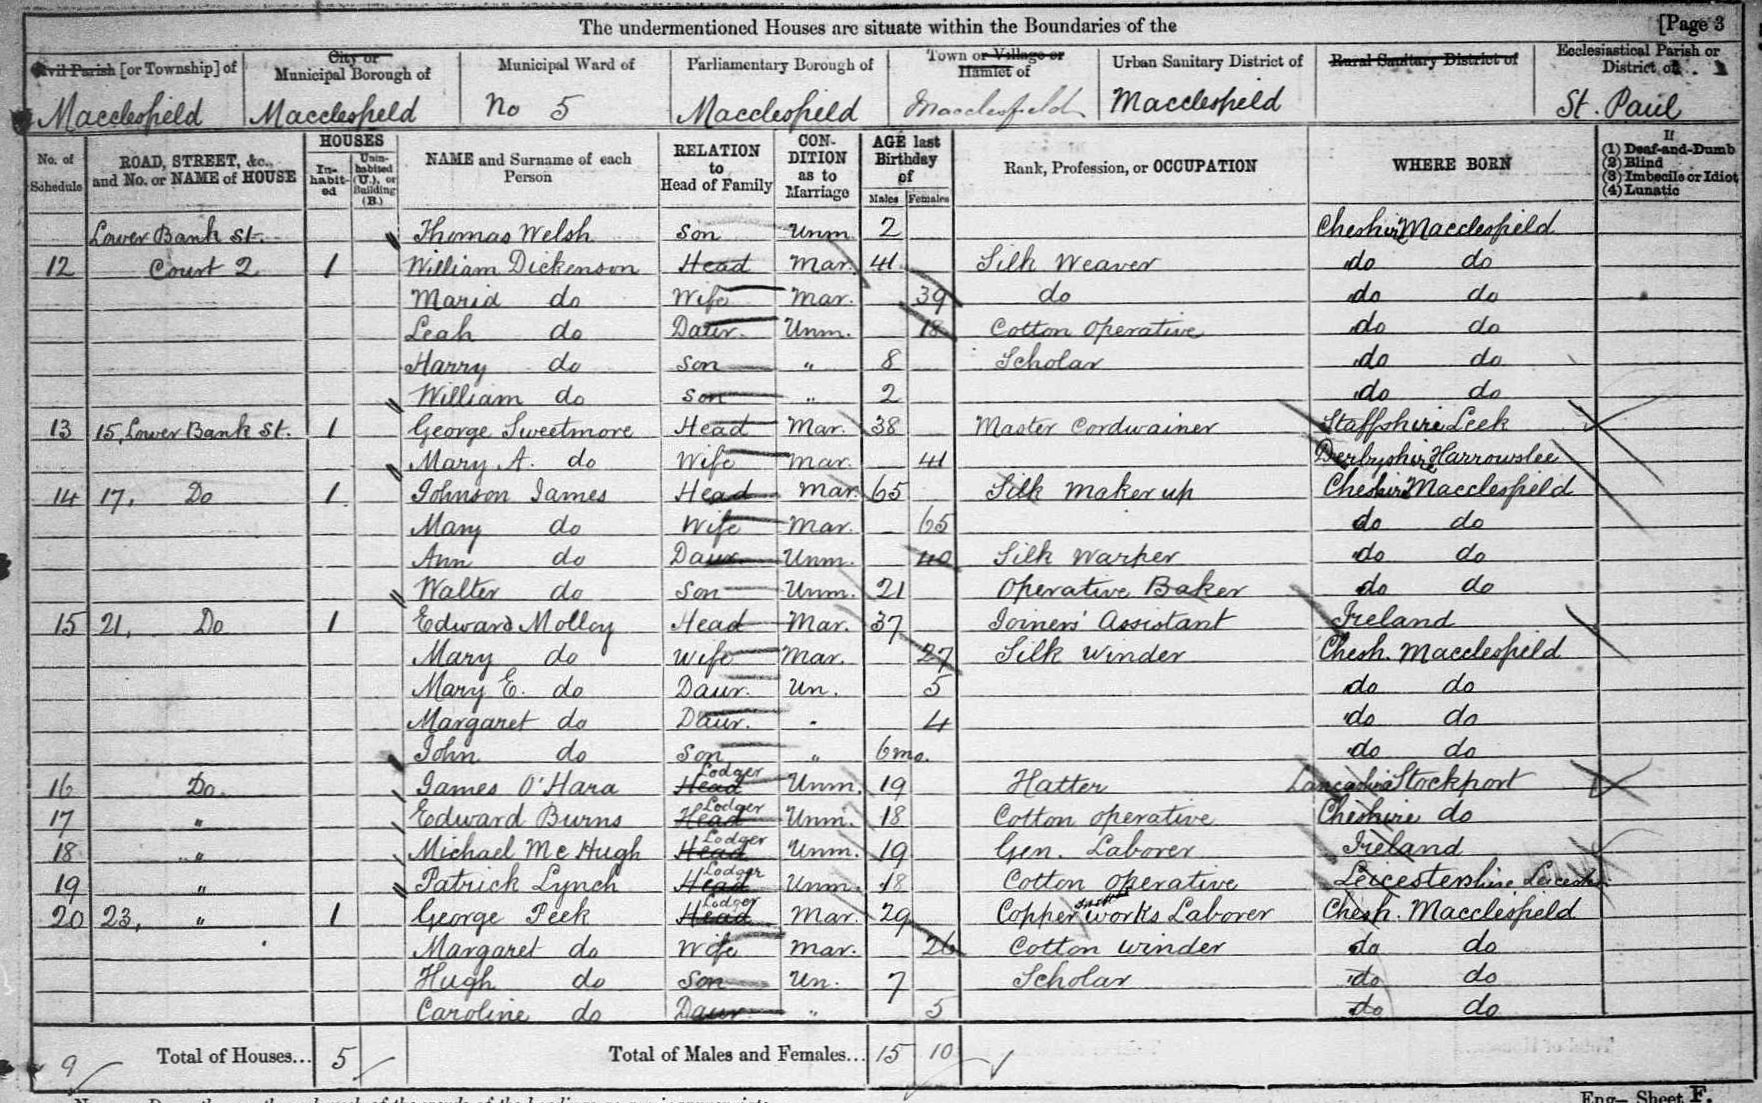 The undermentioned Houses are situate within the Boundaries of the [Page 3
Civil Parish [or Township] of City or Municipal Borough of Municipal Ward of Parliamentary Borough of Town or Village or Hamlet of Urban Sanitary District of Rural Sanitary District of Ecclesiastical Parish or District of
Macclesfield Macclesfield No 5 Macclesfield Macclesfield Macclesfield St. Paul
No. of Schedule ROAD, STREET, &c., and No. or NAME of HOUSE HOUSES Inhabited Uninhabited (U.), or Building (B.) NAME and Surname of each Person RELATION to Head of Family CONDITION as to Marriage AGE last Birthday of Males Females Rank, Profession, or OCCUPATION WHERE BORN If (1) Deaf-and-Dumb (2) Blind (3) Imbecile or Idiot (4) Lunatic
Lower Bank St. Thomas Welsh Son Unm 2 Cheshire Macclesfield
12 Court 2 1 William Dickenson Head Mar. 41 Silk Weaver do do
Maria do Wife Mar. 39 do do do
Leah do Daur. Unm. 18 Cotton Operative do do
Harry do Son " 8 Scholar do do
William do Son " 2 do do
13 15, Lower Bank St. 1 George Sweetmore Head Mar. 38 Master Cordwainer Staffshire Leek
Mary A. do Wife Mar. 41 Derbyshire Harrowslee
14 17, Do 1 Johnson James Head Mar. 65 Silk Maker up Cheshire Macclesfield
Mary do Wife Mar. 65 do do
Ann do Daur Unm. 40 Silk Warper do do
Walter do Son Unm. 21 Operative Baker do do
15 21, Do 1 Edward Molloy Head Mar. 37 Joiners' Assistant Ireland
Mary do Wife Mar. 27 Silk Winder Chesh. Macclesfield
Mary E. do Daur. Un. 5 do do
Margaret do Daur. " 4 do do
John do Son " 6 mo. do do
16 Do. James O'Hara Head Lodger Unm. 19 Hatter Lancashire Stockport
17 " Edward Burns Head Lodger Unm. 18 Cotton operative Cheshire do
18 " Michael Mc Hugh Head Lodger Unm. 19 Gen. Laborer Ireland
19 " Patrick Lynch Head Lodger Unm. 18 Cotton operative Leicestershire Leicester
20 23, " 1 George Peek Head Lodger Mar. 29 Copper works Laborer Chesh. Macclesfield
Margaret do Wife Mar. 26 Cotton winder do do
Hugh do Son Un. 7 Scholar do do
Caroline do Daur " 5 do do
9 Total of Houses... 5 Total of Males and Females... 15 10
Eng– Sheet F.